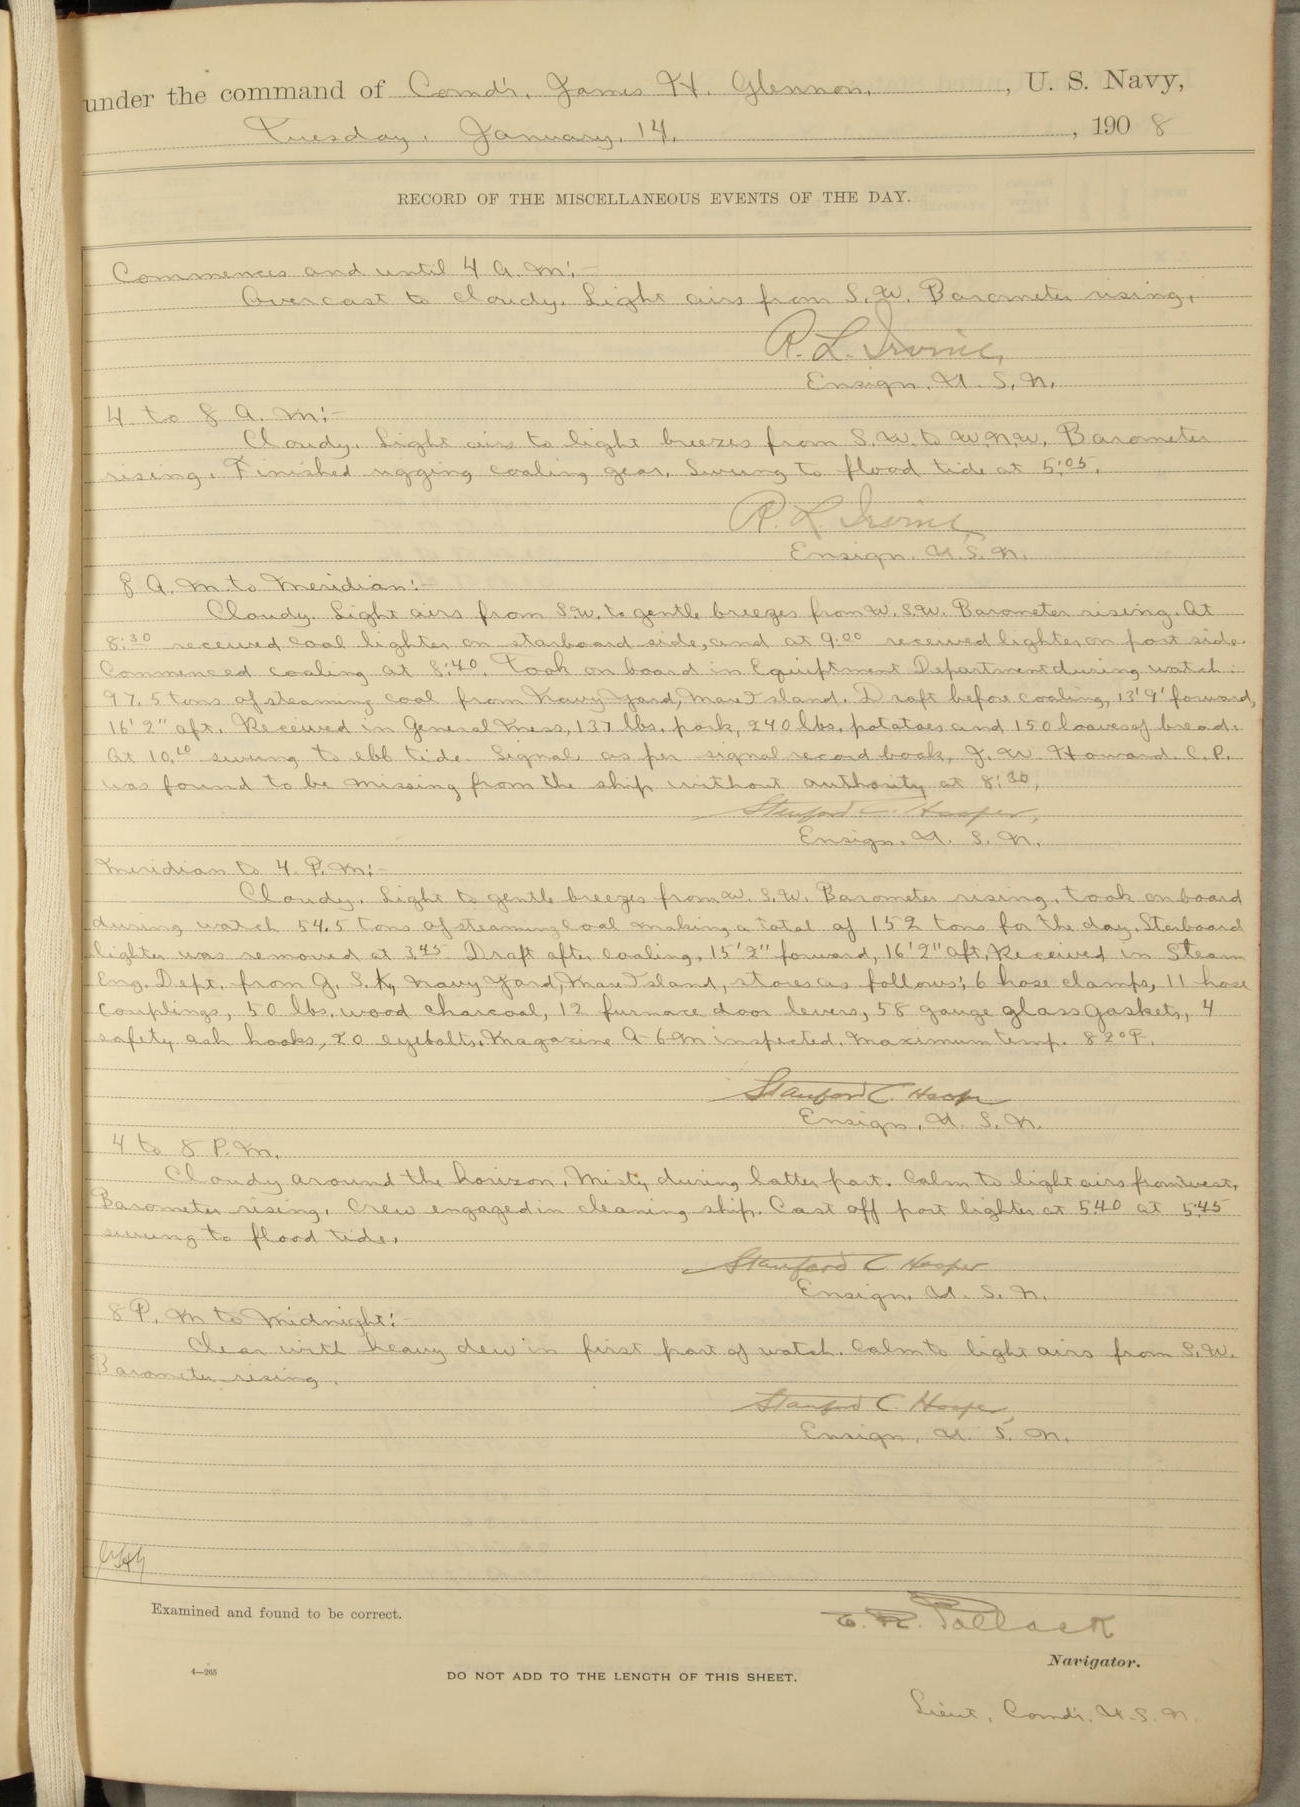 under the command of Comd'r. James H. Glennon, , U. S. Navy,
Tuesday, January, 14, , 1908
RECORD OF THE MISCELLANEOUS EVENTS OF THE DAY.
Commences and until 4 A. M:-
Overcast to cloudy. Light airs from S.W. Barometer rising.
R. L. Irvine,
Ensign, U. S. N.
4 to 8 A. M:-
Cloudy. Light airs to light breezes from S.W. to W.N.W. Barometer
rising. Finished rigging coaling gear. Swung to flood tide at 5:05.
R. L. Irvine
Ensign, U. S. N.
8 A. M to Meridian:-
Cloudy. Light airs from S.W. to gentle breezes from W.S.W. Barometer rising. At
8:30 received coal lighter on starboard side, and at 9:00 received lighter on port side.
Commenced coaling at 8:40. Took on board in Equiptment Department during watch
97.5 tons of steaming coal from Navy Yard, Mare Island. Draft before coaling, 13' 9" forward,
16' 2" aft. Received in General Mess, 137 lbs. pork, 240 lbs. potatoes and 150 loaves of bread.
At 10:10 swung to ebb tide. Signal as per signal record book. J. W. Howard. C.P.
was found to be missing from the ship without authority at 8:30,
Stanford C. Hooper,
Ensign, U. S. N.
Meridian to 4 P. M:-
Cloudy. Light to gentle breezes from W.S.W. Barometer rising. Took on board
during watch 54.5 tons of steaming coal making a total of 152 tons for the day. Starboard
lighter was removed at 3.45 Draft after coaling, 15' 2" forward, 16' 2" aft. Received in Steam
Eng. Dept. from G. S. K, Navy Yard, Mare Island, stores as follows; 6 hose clamps, 11 hose
couplings, 50 lbs. wood charcoal, 12 furnace door levers, 58 gauge glass gaskets, 4
safety ash hooks, 20 eyebolts. Magazine A-6-M inspected. Maximum temp. 82° F.
Stanford C. Hooper
Ensign, U. S. N.
4 to 8 P. M.
Cloudy around the horizon. Misty during latter part. Calm to light airs from west.
Barometer rising. Crew engaged in cleaning ship. Cast off port lighter at 5:40 at 5:45
swung to flood tide.
Stanford C Hooper
Ensign, U. S. N.
8 P. M to Midnight:-
Clear with heavy dew in first part of watch. Calm to light airs from S.W.
Barometer rising.
Stanford C Hooper,
Ensign, U. S. N.
Examined and found to be correct.
E. R. Pollock
Navigator.
4—265
DO NOT ADD TO THE LENGTH OF THIS SHEET.
Lieut. Comd'r. U. S. N.